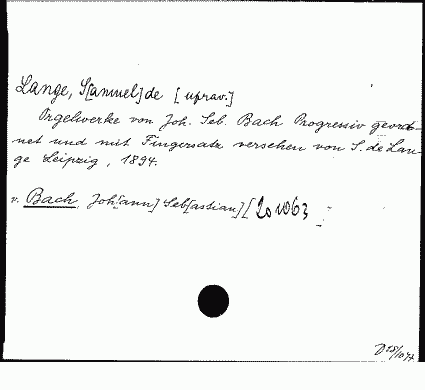 Lange, S[amuel] de [uprav.]
Orgelwerke von Joh. Seb. Bach Progressiv geord-
net und mit Fingersatz versehen von S. de Lan-
ge Leipzig, 1894.
v. Bach, Joh[ann] Seb[astian] [20 1063